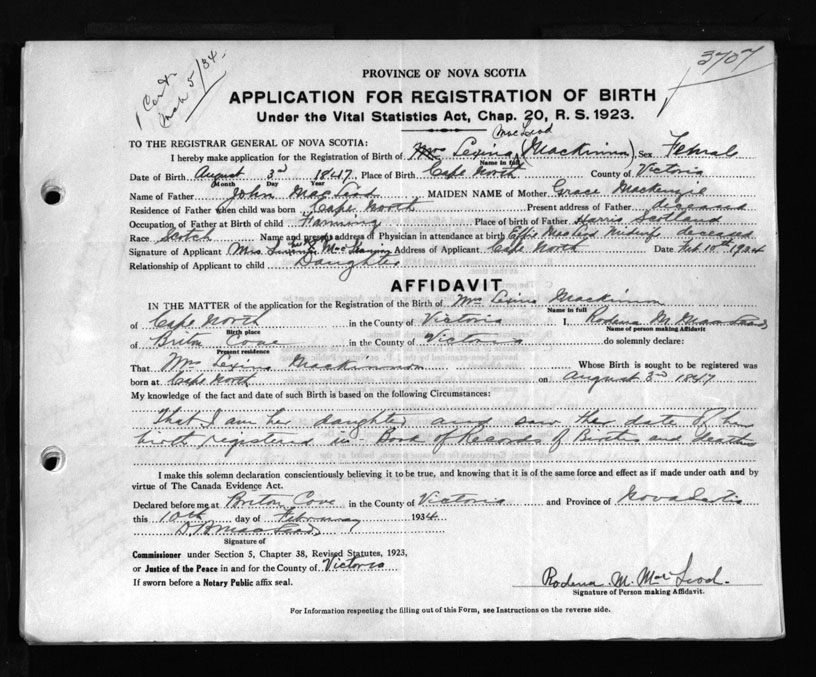 1 Cert
Mch 5/34
3707
PROVINCE OF NOVA SCOTIA
APPLICATION FOR REGISTRATION OF BIRTH
Under the Vital Statistics Act, Chap. 20, R. S. 1923.
MacLeod
TO THE REGISTRAR GENERAL OF NOVA SCOTIA:
I hereby make application for the Registration of Birth of Mrs Lexina (Mackinnon) Sex Female
Name in full
Date of Birth August 3rd 1847 Place of Birth Cape North County of Victoria
Month Day Year
Name of Father John MacLeod MAIDEN NAME of Mother Grace Mackenzie
Residence of Father when child was born Cape North Present address of Father deceased
Occupation of Father at Birth of child Farming Place of birth of Father Harris Scotland
Race Scotch Name and present address of Physician in attendance at birth Effie MacLeod Midwife deceased
Signature of Applicant Mrs Address of Applicant Cape North Date Feb 10th 1934
Relationship of Applicant to child Daughter
AFFIDAVIT
IN THE MATTER of the application for the Registration of the Birth of Mrs Lexina Mackinnon
Name in full
of Cape North in the County of Victoria I, Rodena M. MacLeod
Birth place Name of person making Affidavit
of Briton Cove in the County of Victoria do solemnly declare:
Present residence
That Mrs Lexina Mackinnon Whose Birth is sought to be registered was
born at Cape North on August 3rd 1847
My knowledge of the fact and date of such Birth is based on the following Circumstances:
That I am her daughter and saw the date of her
birth registered in Book of Records of Births and Deaths
I make this solemn declaration conscientiously believing it to be true, and knowing that it is of the same force and effect as if made under oath and by
virtue of The Canada Evidence Act.
Declared before me at Briton Cove in the County of Victoria and Province of Nova Scotia
this 10th day of February 1934
MacLeod
Signature of
Commissioner under Section 5, Chapter 38, Revised Statutes, 1923,
or Justice of the Peace in and for the County of Victoria
If sworn before a Notary Public affix seal.
Rodena M. MacLeod.
Signature of Person making Affidavit.
For Information respecting the filling out of this Form, see Instructions on the reverse side.